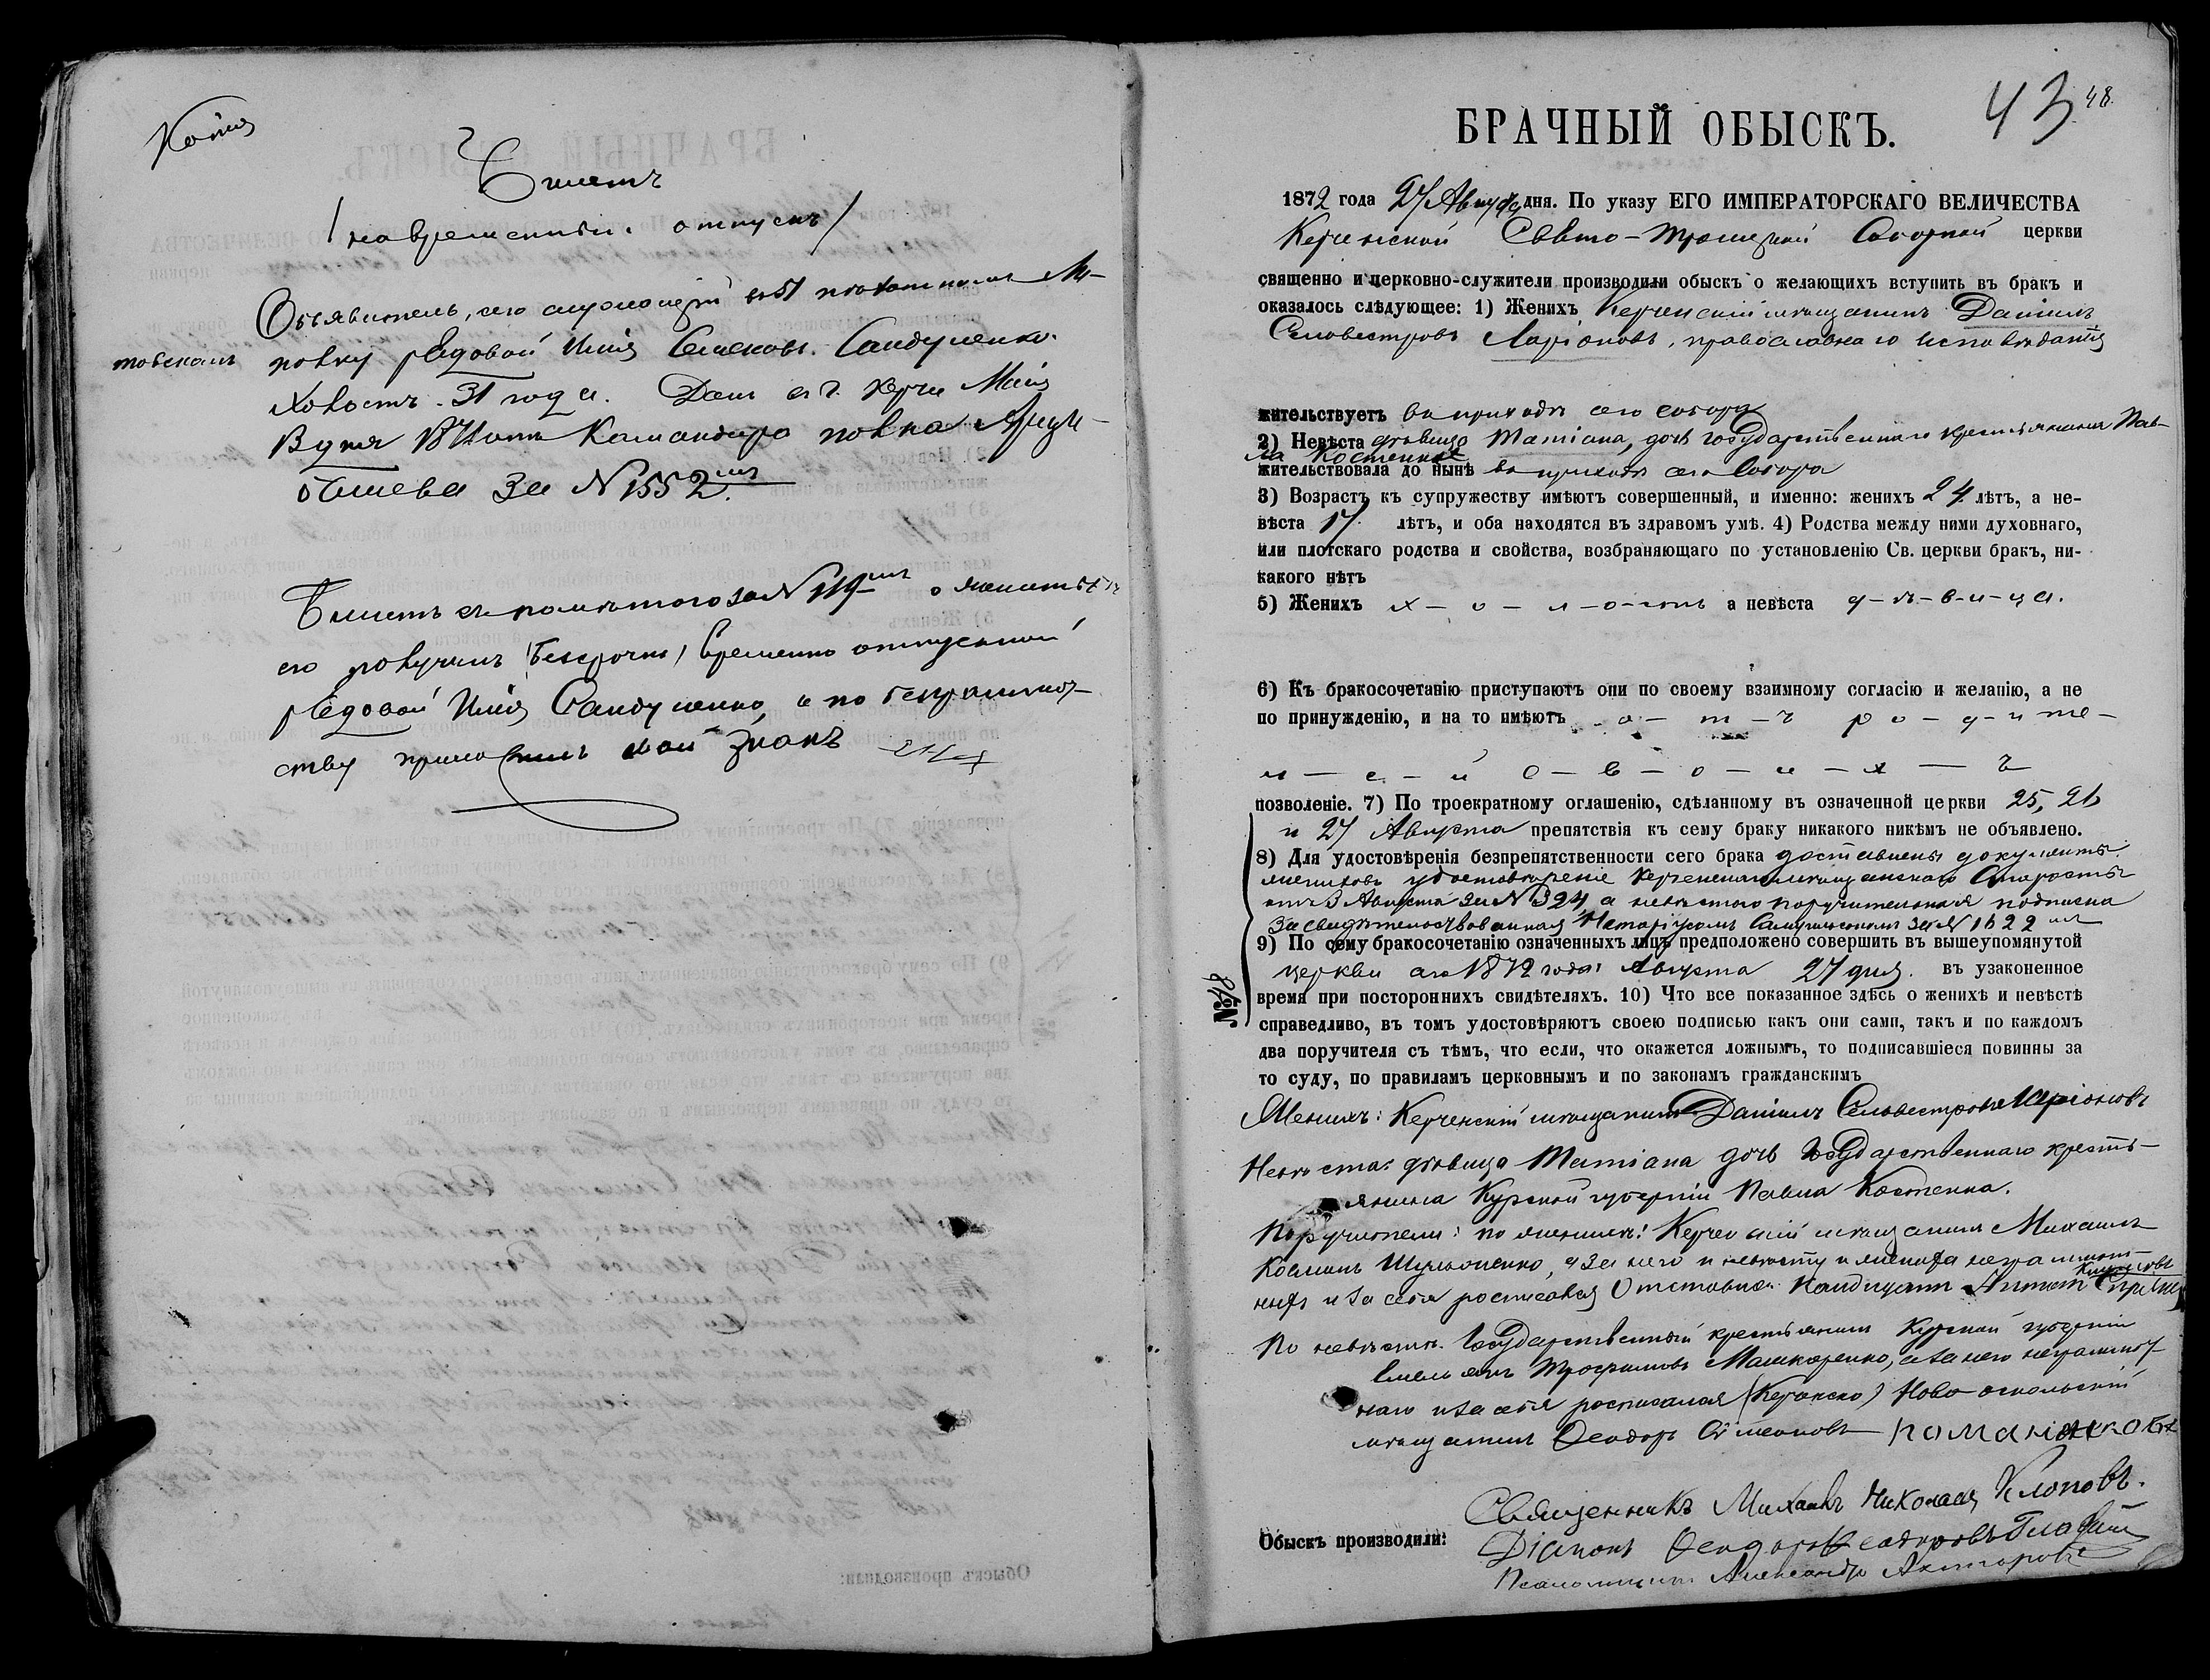 Копія
Билетъ
/ на временный отпускъ /
Объявитель сего служащій въ 51 пѣхотномъ Ли-
товскомъ полку рядовой Илія Семеновъ Сандуленко.
Холостъ. 31 года. Данъ въ г. Керчи Маія
дня 187 отъ Командира полка
за № 1552мъ
Билетъ съ помѣтою за № 119мъ о женитьбѣ
его получилъ (безсрочно) временно отпускной
рядовой Илія Сандуленко, а по безграмот-
ству приложилъ свой знакъ
43 48.
БРАЧНЫЙ ОБЫСКЪ.
1872 года 27 Августа дня. По указу ЕГО ИМПЕРАТОРСКАГО ВЕЛИЧЕСТВА
Керченской Свято-Троицкой Соборной церкви
священно и церковно-служители производили обыскъ о желающихъ вступить въ бракъ и
оказалось слѣдующее: 1) Женихъ Керченскій мѣщанинъ Даніилъ
Селовестровъ Ларіоновъ, православнаго исповѣданія
жительствуетъ въ приходѣ сего собора
2) Невѣста дѣвица Татіана, дочь государственнаго крестьянина Пав-
ла Костенка
жительствовала до нынѣ въ приходѣ сего Собора
3) Возрастъ къ супружеству имѣютъ совершенный, и именно: женихъ 24 лѣтъ, а не-
вѣста 17. лѣтъ, и оба находятся въ здравомъ умѣ. 4) Родства между ними духовнаго,
или плотскаго родства и свойства, возбраняющаго по установленію Св. церкви бракъ, ни-
какого нѣтъ
5) Женихъ х-о-л-о-стъ а невѣста д-ѣ-в-и-ца.
6) Къ бракосочетанію приступаютъ они по своему взаимному согласію и желанію, а не
по принужденію, и на то имѣютъ о - т - ъ р о - д - и те -
л - е - й с - в - о - и - х - ъ
позволеніе. 7) По троекратному оглашенію, сдѣланному въ означенной церкви 25, 26
и 27 Августа препятствія къ сему браку никакого никѣмъ не объявлено.
8) Для удостовѣренія безпрепятственности сего брака доставлены документы:
женихомъ удостовѣреніе Керченскаго мѣщанскаго Старосты
отъ 3 Августа за № 324, а невѣстою поручительная подписка
засвидѣтельствованная Нотаріусомъ за № 1622мъ
9) По сему бракосочетанію означенныхъ лицъ предположено совершить въ вышеупомянутой
церкви сего 1872 года Августа 27 дня. въ узаконенное
№ 48
время при постороннихъ свидѣтеляхъ. 10) Что все показанное здѣсь о женихѣ и невѣстѣ
справедливо, въ томъ удостовѣряютъ своею подписью какъ они сами, такъ и по каждомъ
два поручителя съ тѣмъ, что если, что окажется ложнымъ, то подписавшіеся повинны за
то суду, по правиламъ церковнымъ и по законамъ гражданскимъ
Женихъ: Керченскій мѣщанинъ Даніилъ Селовестровъ Ларіоновъ
Невѣста: дѣвица Татіана дочь Государственнаго кресть-
янина Курской губерніи Павла Костенка.
Поручители: по женихѣ: Керченскій мѣщанинъ Михаилъ
Козминъ, а за него и невѣсту и жениха неграмот-
ныхъ и за себя росписался Отставной Кандидатъ Антонъ
По невѣстѣ: Государственный крестьянинъ Курской губерніи
Емельянъ Трофимовъ Машкаренко, а за него неграмот-
наго и за себя росписался Ново-оскольскій
мѣщанинъ Ѳеодоръ Симеоновъ
Обыскъ производили: Священникъ Михаилъ Клоповъ.
Діаконъ Ѳеодоръ
Псаломщикъ Александръ